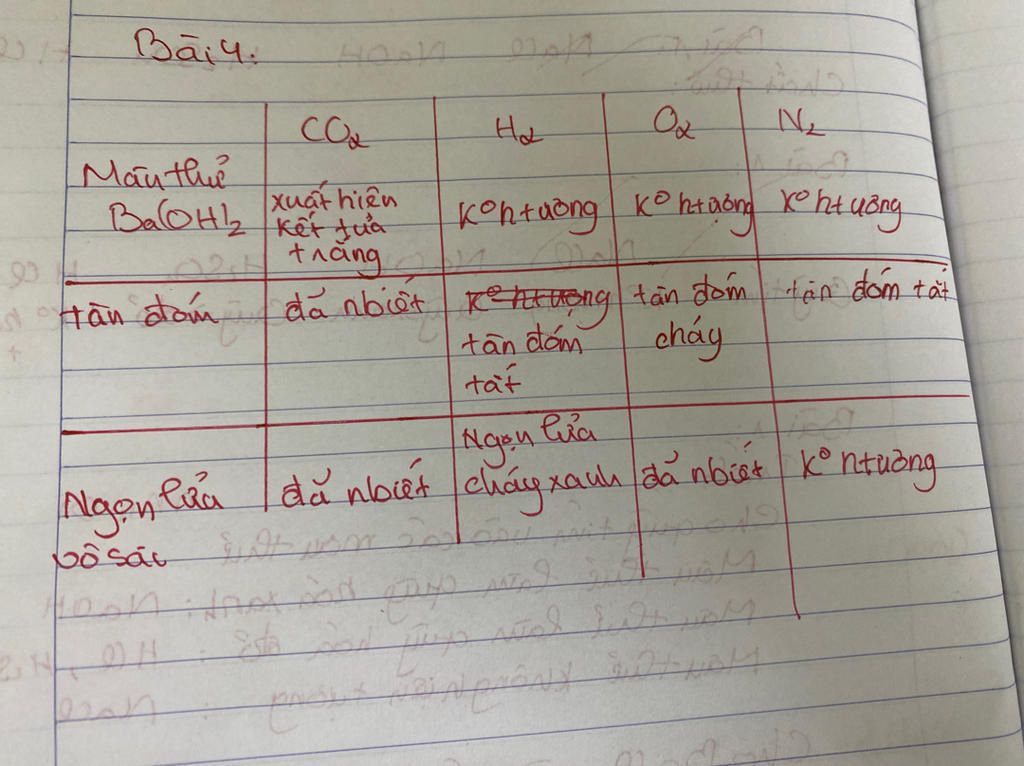 Bài 4:
CO2 H2 O2 N2
Mẫu thử
Ba(OH)2
xuất hiện
kết tủa
trắng
k° htượng k° htượng k° htượng
tàn đóm đã nbiết k° htượng tàn đóm tàn đóm tắt
tàn đóm cháy
tắt
Ngọn lửa
vô sắc
đã nbiết
Ngọn lửa
cháy xanh
đã nbiết k° htượng